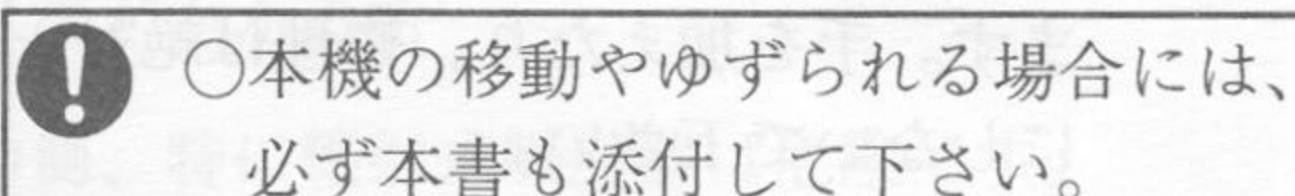 ○本機の移動やゆずられる場合には、
必ず本書も添付して下さい。